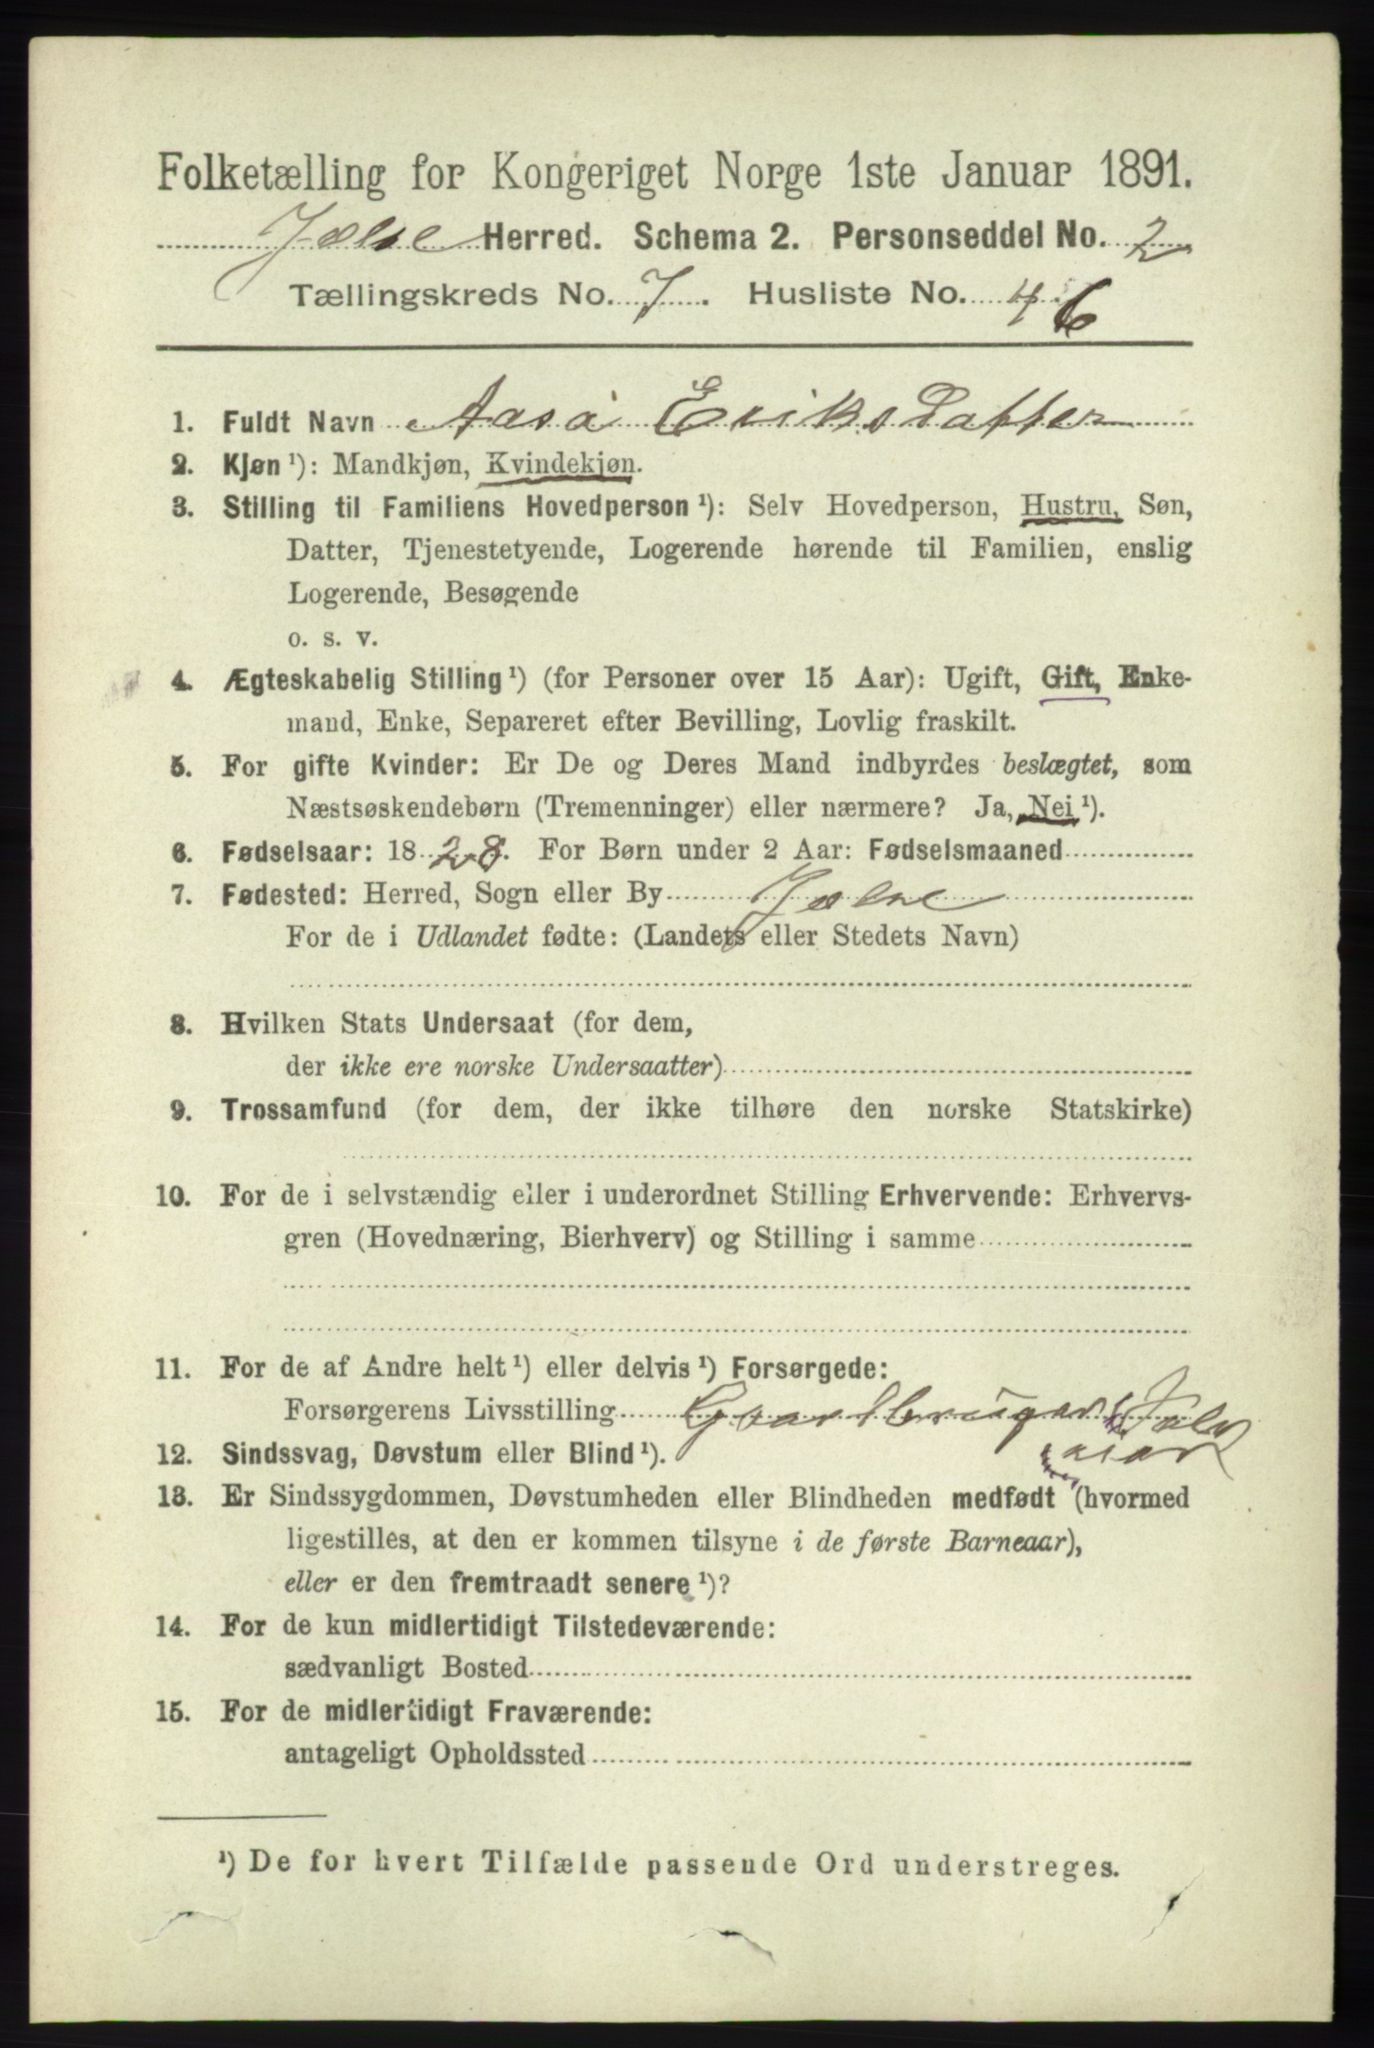 Folketælling for Kongeriget Norge 1ste Januar 1891.
Jælse Herred. Schema 2. Personseddel No. 2
Tællingskreds No. 7. Husliste No. 46
1. Fuldt Navn Aasa Eriksdatter
2. Kjøn ¹): Mandkjøn, Kvindekjøn.
3. Stilling til Familiens Hovedperson ¹): Selv Hovedperson, Hustru, Søn,
Datter, Tjenestetyende, Logerende hørende til Familien, enslig
Logerende, Besøgende
o. s. v.
4. Ægteskabelig Stilling ¹) (for Personer over 15 Aar): Ugift, Gift, Enke-
mand, Enke, Separeret efter Bevilling, Lovlig fraskilt.
5. For gifte Kvinder: Er De og Deres Mand indbyrdes beslægtet, som
Næstsøskendebørn (Tremenninger) eller nærmere? Ja, Nei ¹).
6. Fødselsaar: 1828. For Børn under 2 Aar: Fødselsmaaned
7. Fødested: Herred, Sogn eller By Jælse
For de i Udlandet fødte: (Landets eller Stedets Navn)
8. Hvilken Stats Undersaat (for dem,
der ikke ere norske Undersaatter)
9. Trossamfund (for dem, der ikke tilhøre den norske Statskirke)
10. For de i selvstændig eller i underordnet Stilling Erhvervende: Erhvervs-
gren (Hovednæring, Bierhverv) og Stilling i samme
11. For de af Andre helt ¹) eller delvis ¹) Forsørgede:
Forsørgerens Livsstilling Gaardbruger Selv
eier
12. Sindssvag, Døvstum eller Blind ¹).
13. Er Sindssygdommen, Døvstumheden eller Blindheden medfødt (hvormed
ligestilles, at den er kommen tilsyne i de første Barneaar),
eller er den fremtraadt senere ¹)?
14. For de kun midlertidigt Tilstedeværende:
sædvanligt Bosted
15. For de midlertidigt Fraværende:
antageligt Opholdssted
¹) De for hvert Tilfælde passende Ord understreges.